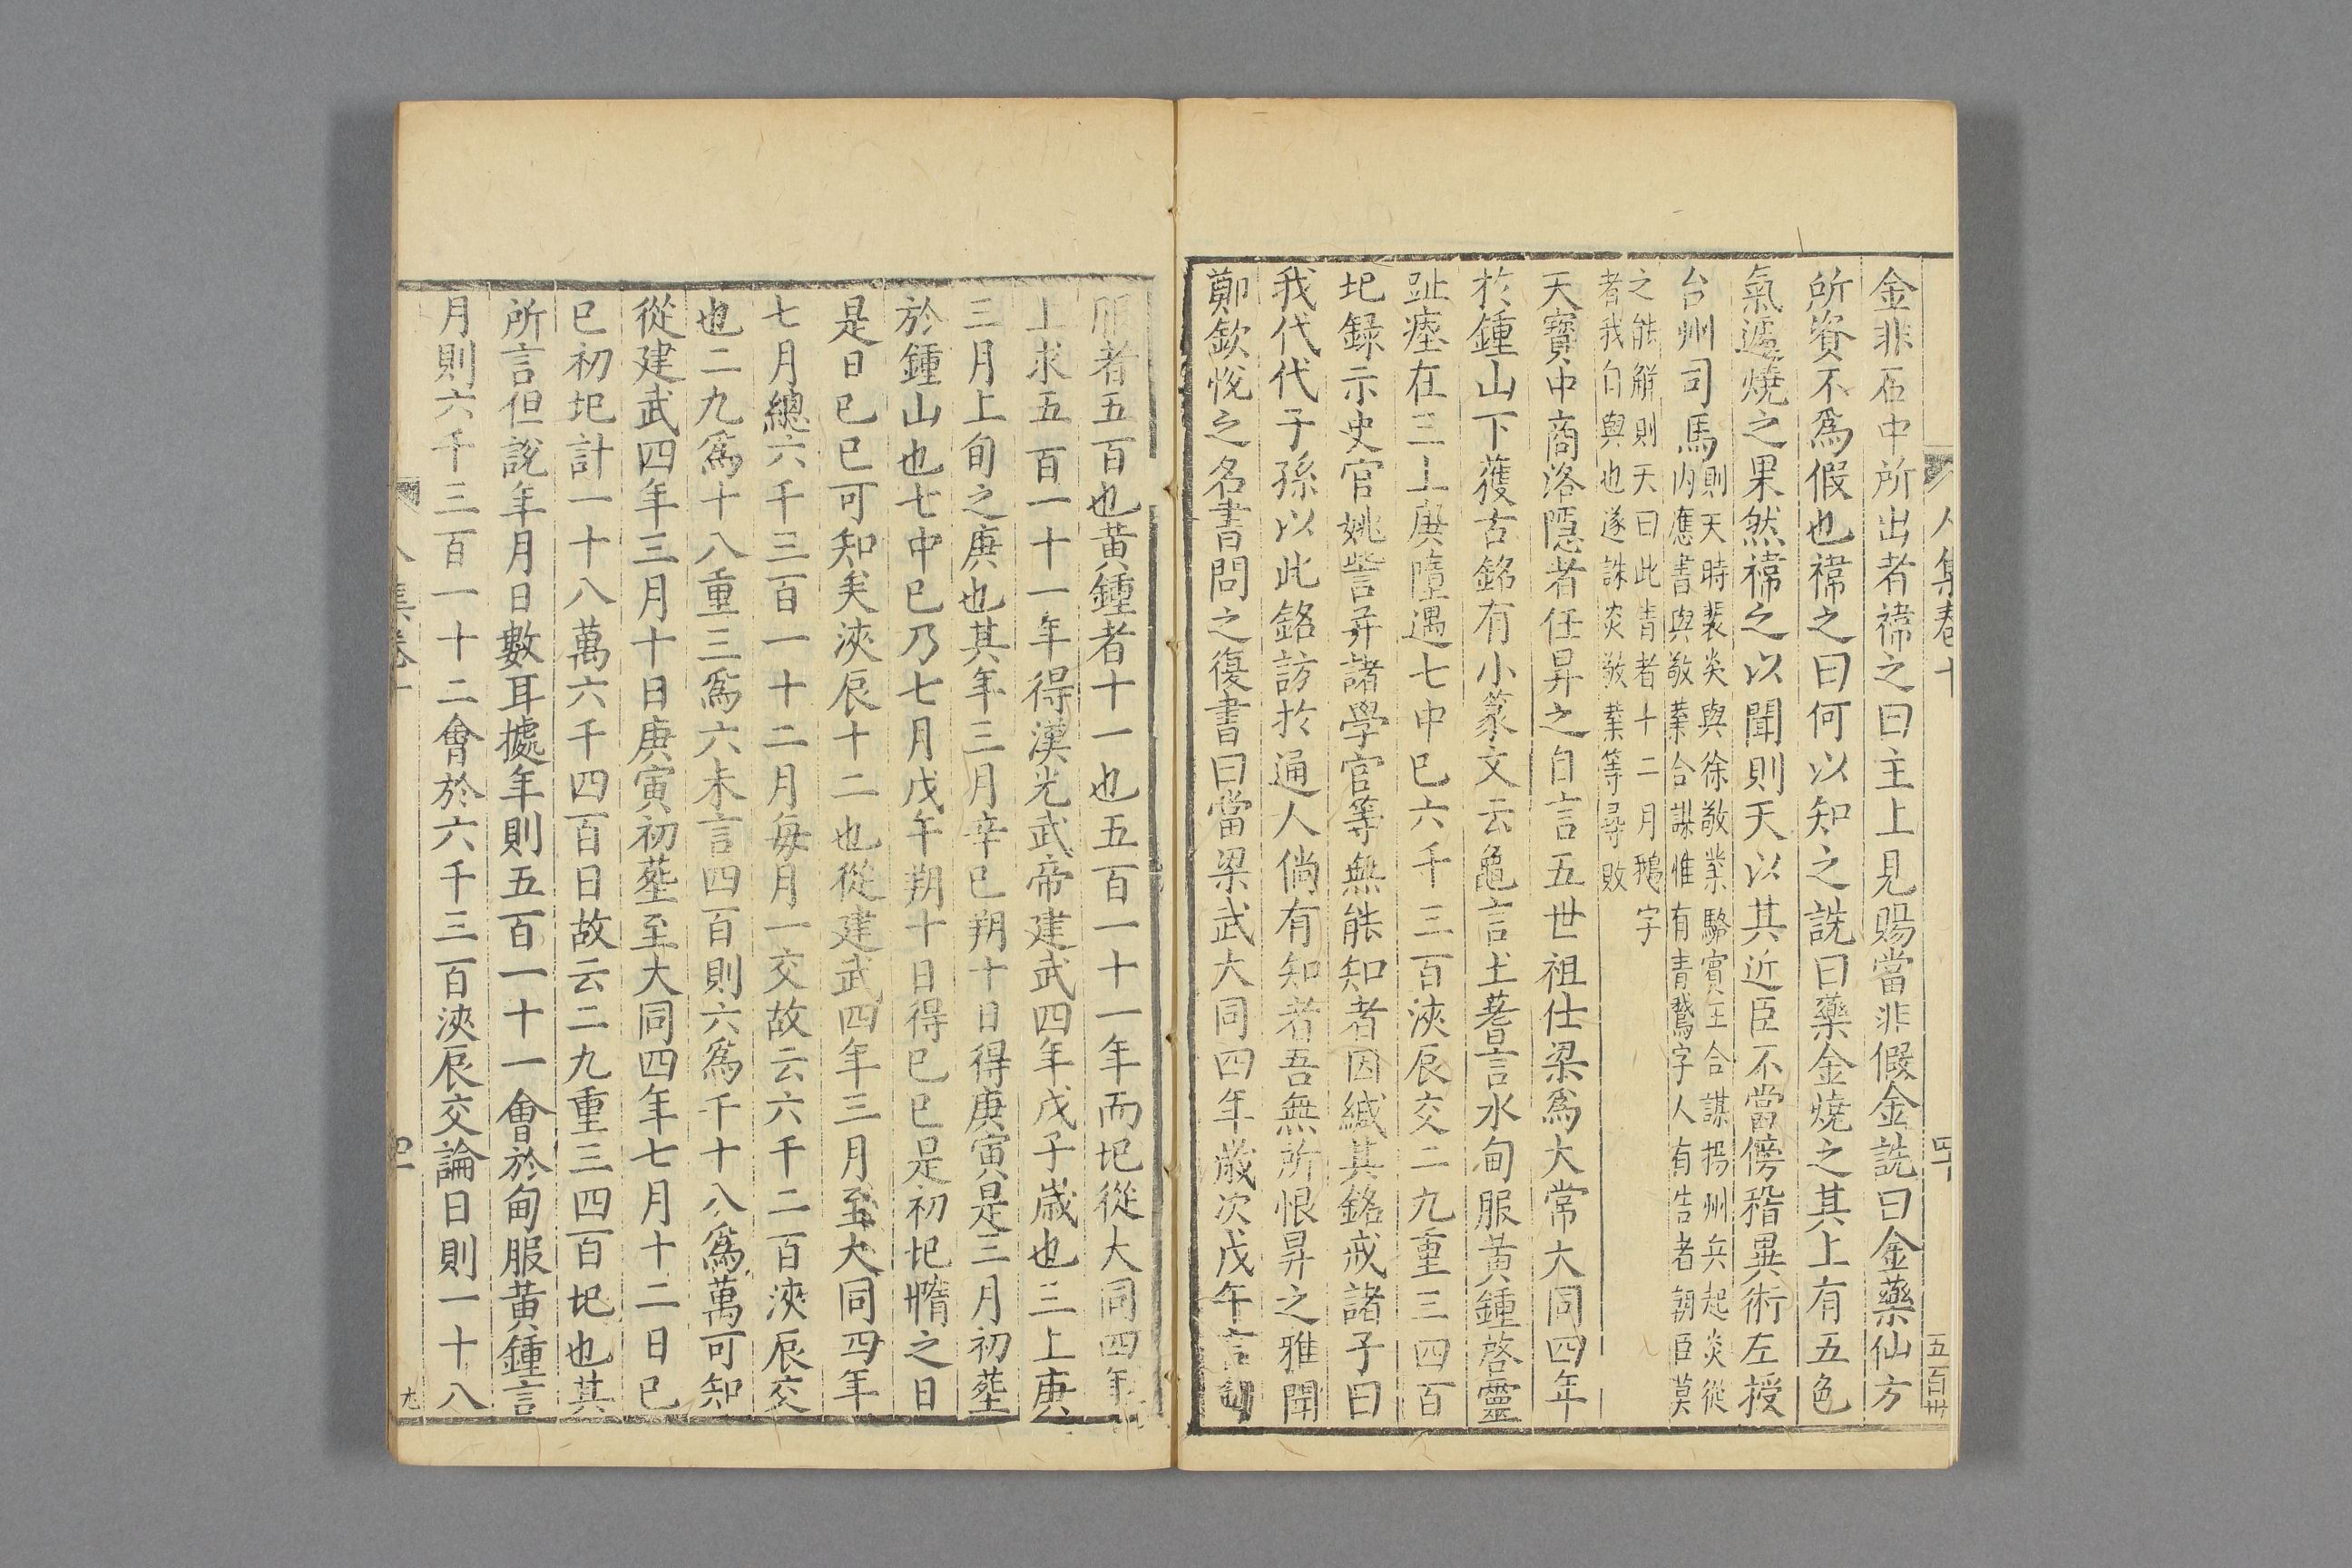 金非石中所出者禕之曰主上見賜當非假金詵曰金藥仙方
所資不爲假也禕之曰何以知之詵曰藥金燒之其上有五色
氣遽燒之果然禕之以聞則天以其近臣不當傍稽異術左授
台州司馬則天時裴炎與徐敬業駱賓王合謀揚州兵起炎從
内應書與敬業合謀惟有青鵞字人有告者朝臣莫
之能解則天曰此青者十二月鵝字
者我自與也遂誅炎敬業等尋敗
天寶中商洛隱者任昇之自言五世祖仕梁爲大常大同四年
於鍾山下獲古銘有小篆文云龜言土蓍言水甸服黃鍾啓靈
趾瘞在三上庚墮遇七中巳六千三百浹辰交二九重三四百
圯録示史官姚訾并諸學官等無能知者因緘其銘戒諸子曰
我代代子孫以此銘訪於通人倘有知者吾無所恨昇之雅聞
鄭欽悅之名書問之復書曰當梁武大同四年歲次戊午言
服者五百也黃鍾者十一也五百一十一年而圯從大同四年
上求五百一十一年得漢光武帝建武四年戊子歲也三上庚
三月上旬之庚也其年三月辛巳朔十日得庚寅是三月初塟
於鍾山也七中巳乃七月戊午朔十日得巳巳是初圯墯之日
是日巳巳可知矣浹辰十二也從建武四年三月至大同四年
七月總六千三百一十二月每月一交故云六千二百浹辰交
也二九爲十八重三爲六末言四百則六爲千十八爲萬可知
從建武四年三月十日庚寅初塟至大同四年七月十二日巳
巳初圯計一十八萬六千四百日故云二九重三四百圯也其
所言但說年月日數耳據年則五百一十一會於甸服黃鍾言
月則六千三百一十二會於六千三百浹辰交論日則一十八